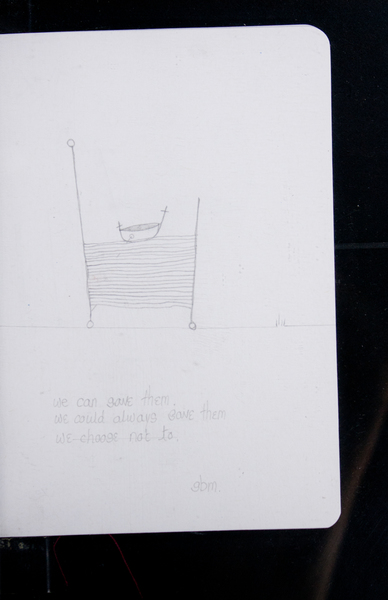 we can save them.
we could always save them
we choose not to.
sbm